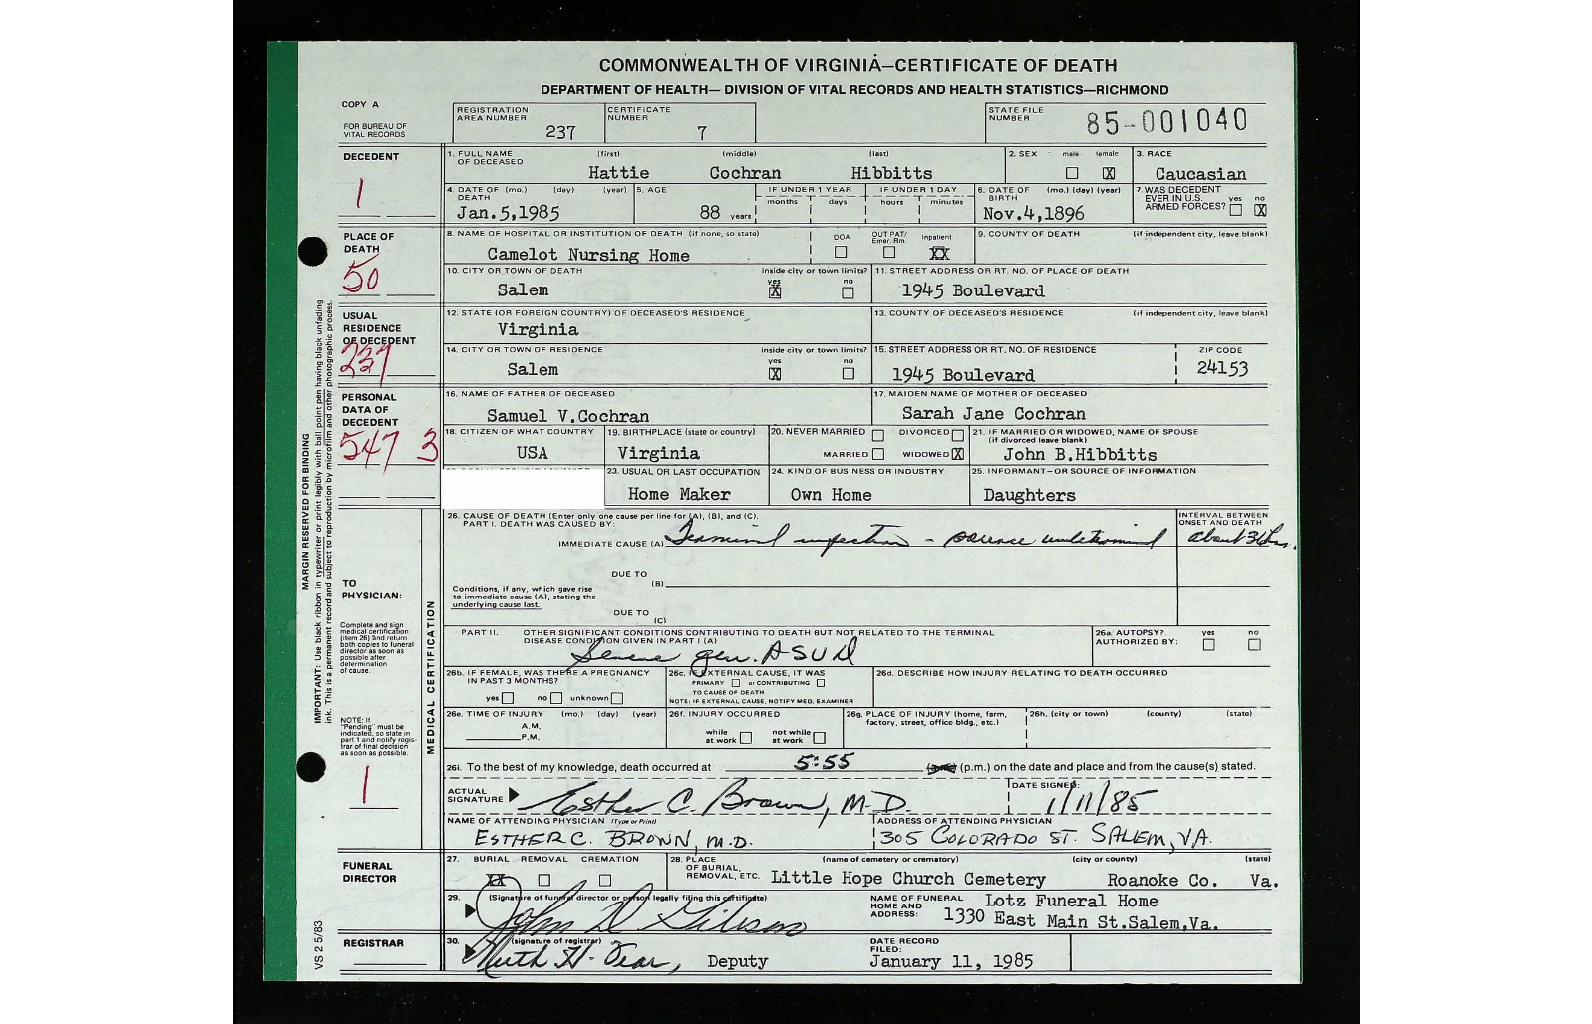 COMMONWEALTH OF VIRGINIA—CERTIFICATE OF DEATH
DEPARTMENT OF HEALTH— DIVISION OF VITAL RECORDS AND HEALTH STATISTICS—RICHMOND
COPY A
FOR BUREAU OF VITAL RECORDS
REGISTRATION AREA NUMBER 237
CERTIFICATE NUMBER 7
STATE FILE NUMBER 85-001040
DECEDENT
1
1. FULL NAME OF DECEASED (first) (middle) (last)
Hattie Cochran Hibbitts
2. SEX male female X
3. RACE
Caucasian
4. DATE OF DEATH (mo.) (day) (year)
Jan.5,1985
5. AGE
88 years
IF UNDER 1 YEAR months days
IF UNDER 1 DAY hours minutes
6. DATE OF BIRTH (mo.) (day) (year)
Nov.4,1896
7. WAS DECEDENT EVER IN U.S. ARMED FORCES? yes no X
PLACE OF DEATH
50
8. NAME OF HOSPITAL OR INSTITUTION OF DEATH (if none, so state)
Camelot Nursing Home
DOA OUT PAT/ Emer. Rm. Inpatient XX
9. COUNTY OF DEATH (if independent city, leave blank)
10. CITY OR TOWN OF DEATH inside city or town limits? yes X no
Salem
11. STREET ADDRESS OR RT. NO. OF PLACE OF DEATH
1945 Boulevard
USUAL RESIDENCE OF DECEDENT
237
12. STATE (OR FOREIGN COUNTRY) OF DECEASED'S RESIDENCE
Virginia
13. COUNTY OF DECEASED'S RESIDENCE (if independent city, leave blank)
14. CITY OR TOWN OF RESIDENCE inside city or town limits? yes X no
Salem
15. STREET ADDRESS OR RT. NO. OF RESIDENCE
1945 Boulevard
ZIP CODE
24153
PERSONAL DATA OF DECEDENT
547 3
16. NAME OF FATHER OF DECEASED
Samuel V.Cochran
17. MAIDEN NAME OF MOTHER OF DECEASED
Sarah Jane Cochran
18. CITIZEN OF WHAT COUNTRY
USA
19. BIRTHPLACE (state or country)
Virginia
20. NEVER MARRIED DIVORCED
MARRIED WIDOWED X
21. IF MARRIED OR WIDOWED, NAME OF SPOUSE (if divorced leave blank)
John B.Hibbitts
23. USUAL OR LAST OCCUPATION
Home Maker
24. KIND OF BUSINESS OR INDUSTRY
Own Home
25. INFORMANT—OR SOURCE OF INFORMATION
Daughters
MARGIN RESERVED FOR BINDING
IMPORTANT: Use black ribbon in typewriter or print legibly with ball point pen having black unfading
ink. This is a permanent record and subject to reproduction by microfilm and other photographic process.
MEDICAL CERTIFICATION
TO PHYSICIAN:
Complete and sign medical certification (item 26) and return both copies to funeral director as soon as possible after determination of cause.
NOTE: If "Pending" must be indicated, so state in part 1 and notify registrar of final decision as soon as possible.
1
26. CAUSE OF DEATH (Enter only one cause per line for (A), (B), and (C).
PART I. DEATH WAS CAUSED BY:
INTERVAL BETWEEN ONSET AND DEATH
IMMEDIATE CAUSE (A) Terminal infection - source undetermined about 36 hrs.
DUE TO (B)
Conditions, if any, which gave rise to immediate cause (A), stating the underlying cause last.
DUE TO (C)
PART II. OTHER SIGNIFICANT CONDITIONS CONTRIBUTING TO DEATH BUT NOT RELATED TO THE TERMINAL DISEASE CONDITION GIVEN IN PART I (A)
gen. ASUD
26a. AUTOPSY? AUTHORIZED BY: yes no
26b. IF FEMALE, WAS THERE A PREGNANCY IN PAST 3 MONTHS?
yes no unknown
26c. IF EXTERNAL CAUSE, IT WAS
PRIMARY or CONTRIBUTING
TO CAUSE OF DEATH
NOTE: IF EXTERNAL CAUSE, NOTIFY MED. EXAMINER
26d. DESCRIBE HOW INJURY RELATING TO DEATH OCCURRED
26e. TIME OF INJURY (mo.) (day) (year)
A.M.
P.M.
26f. INJURY OCCURRED
while at work not while at work
26g. PLACE OF INJURY (home, farm, factory, street, office bldg., etc.)
26h. (city or town) (county) (state)
26i. To the best of my knowledge, death occurred at 5:55 (p.m.) on the date and place and from the cause(s) stated.
ACTUAL SIGNATURE Esther C. Brown, M.D.
DATE SIGNED: 1/11/85
NAME OF ATTENDING PHYSICIAN (Type or Print)
ESTHER C. BROWN, M.D.
ADDRESS OF ATTENDING PHYSICIAN
305 COLORADO ST. SALEM, VA.
FUNERAL DIRECTOR
27. BURIAL REMOVAL CREMATION
XX
28. PLACE OF BURIAL, REMOVAL, ETC. (name of cemetery or crematory) (city or county) (state)
Little Hope Church Cemetery Roanoke Co. Va.
29. (Signature of funeral director or person legally filing this certificate)
John D Gibson
NAME OF FUNERAL HOME AND ADDRESS: Lotz Funeral Home
1330 East Main St.Salem,Va.
REGISTRAR
30. (signature of registrar)
Ruth H. Dear, Deputy
DATE RECORD FILED:
January 11, 1985
VS 2 5/83